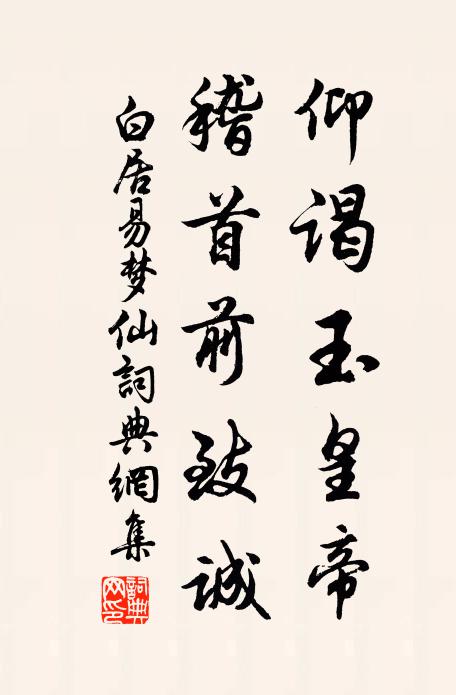 仰谒玉皇帝
稽首前致诚
白居易梦仙詞典網集
詞典网印